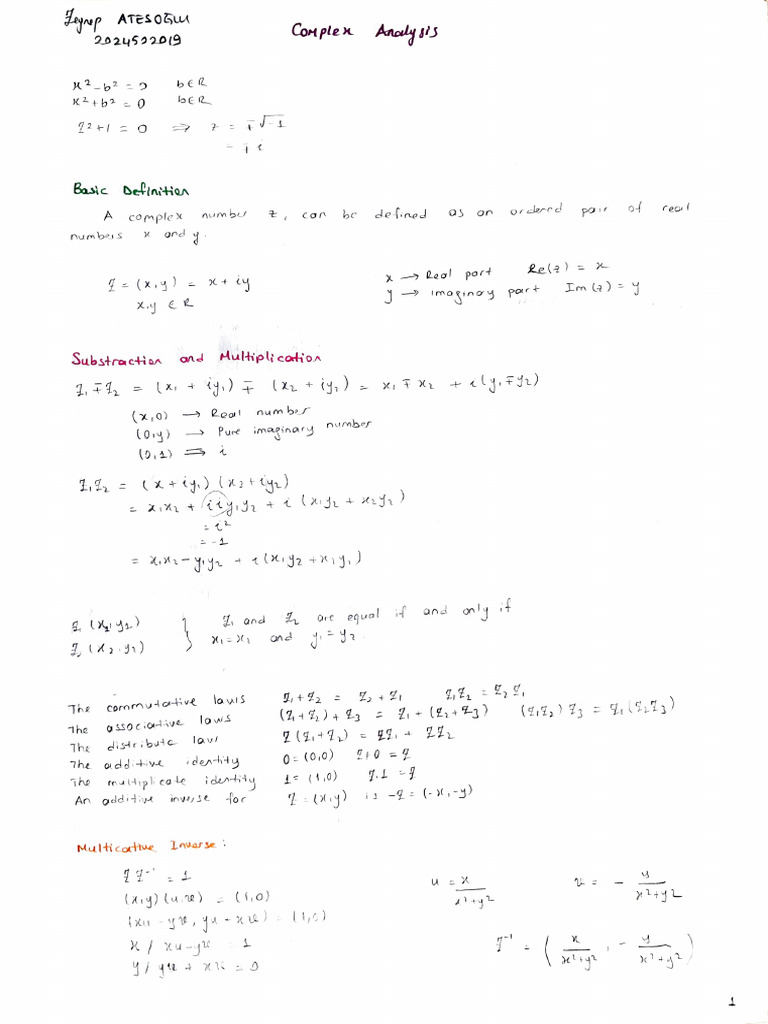 Zeynep ATESOĞLU
2024502019
Complex Analysis
x² - b² = 0 b∈R
x² + b² = 0 b∈R
z² + 1 = 0 ⇒ z = ∓√-1
= ∓ i
Basic Definition
A complex number z, can be defined as an ordered pair of real
numbers x and y.
z = (x,y) = x + iy
x,y ∈ R
x → Real part Re(z) = x
y → imaginary part Im(z) = y
Substraction and Multiplication
z₁ ∓ z₂ = (x₁ + iy₁) ∓ (x₂ + iy₂) = x₁ ∓ x₂ + i(y₁ ∓ y₂)
(x,0) → Real number
(0,y) → Pure imaginary number
(0,1) ⇒ i
z₁z₂ = (x + iy₁)(x₂ + iy₂)
= x₁x₂ + iiy₁y₂ + i (x₁y₂ + x₂y₂)
= i²
= -1
= x₁x₂ - y₁y₂ + i(x₁y₂ + x₁y₁)
z₁ (x₁, y₁)
z₂ (x₂, y₂)
} z₁ and z₂ are equal if and only if
x₁ = x₂ and y₁ = y₂.
The commutative laws z₁ + z₂ = z₂ + z₁ z₁z₂ = z₂z₁
The associative laws (z₁ + z₂) + z₃ = z₁ + (z₂ + z₃) (z₁z₂)z₃ = z₁(z₂z₃)
The distribute law z(z₁ + z₂) = zz₁ + zz₂
The additive identity 0 = (0,0) z + 0 = z
The multiplicate identity 1 = (1,0) z.1 = z
An additive inverse for z = (x,y) is -z = (-x,-y)
Multicative Inverse:
z z⁻¹ = 1
(x,y)(u,v) = (1,0)
(xu - yv, yu + xv) = (1,0)
x / xu - yv = 1
y / yv + xv = 0
u = x / x² + y² v = - y / x² + y²
z⁻¹ = ( x / x² + y² , - y / x² + y² )
1